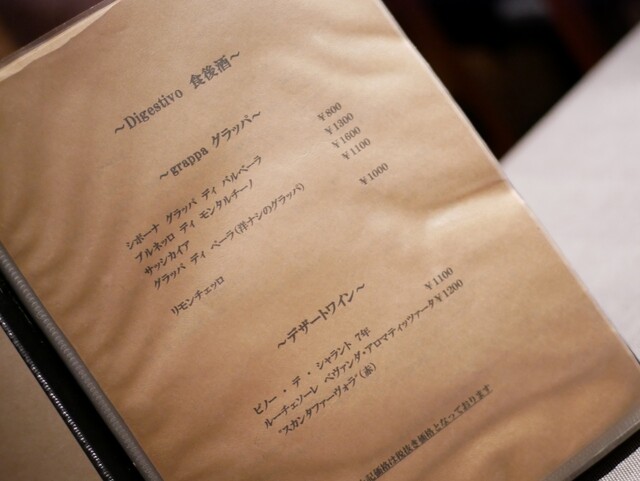 ~Digestivo 食後酒~
~grappa グラッパ~
シボーナ グラッパ ディ バルベーラ ¥800
ブルネッロ ディ モンタルチーノ ¥1300
サッシカイア ¥1600
グラッパ ディ ペーラ(洋ナシのグラッパ) ¥1100
リモンチェッロ ¥1000
~デザートワイン~
ピノー・デ・シャラント 7年 ¥1100
ルーチェソーレ ベヴァンダ・アロマティッツァータ ¥1200
"スカンタファーヴォラ"(赤)
記価格は税抜き価格となっております